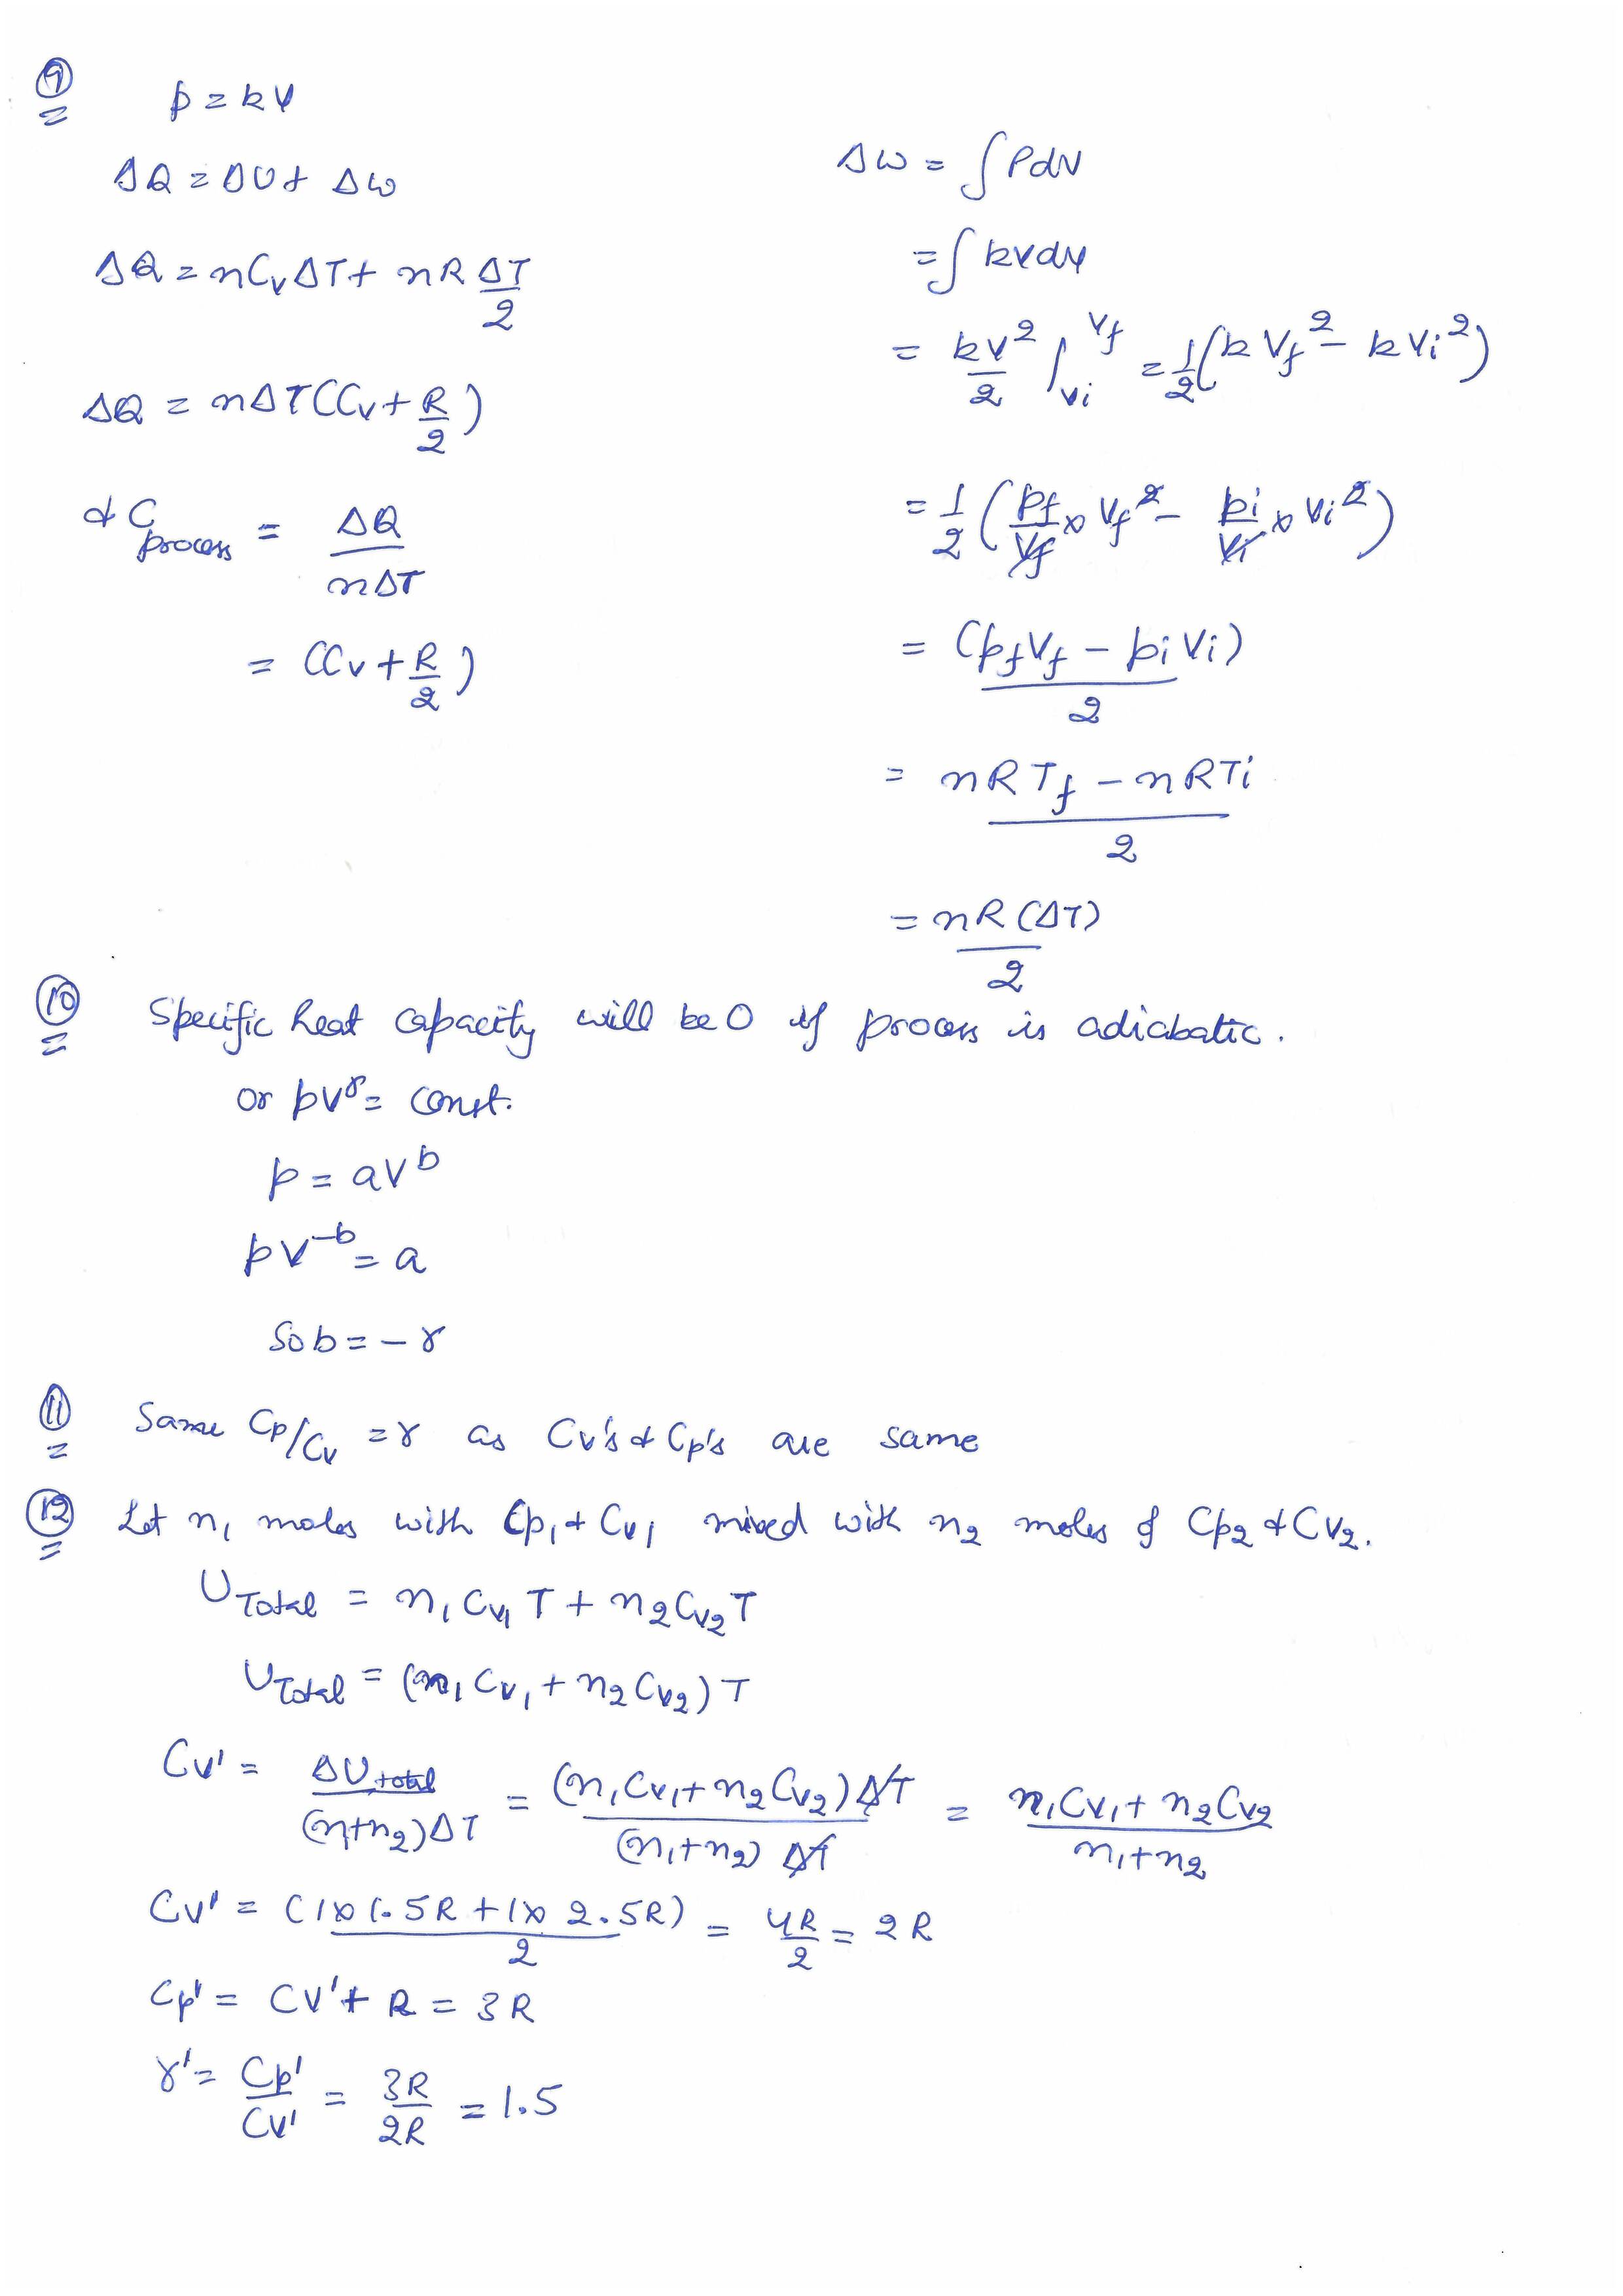 9
p = kV
ΔQ = ΔU + ΔW
ΔQ = nCvΔT + nR ΔT/2
ΔQ = nΔT(Cv + R/2)
& C process = ΔQ/nΔT
= (Cv + R/2)
ΔW = ∫PdV
= ∫kVdV
= kV²/2 |Vi Vf = 1/2(kVf² - kVi²)
= 1/2 (pf/Vf × Vf² - pi/Vi × Vi²)
= (pfVf - piVi)/2
= nRTf - nRTi/2
= nR(ΔT)/2
10 Specific heat capacity will be 0 if process is adiabatic.
or pV^γ = const.
p = aV^b
pV^-b = a
So b = -γ
11 Same Cp/Cv = γ as Cv's & Cp's are same
12 Let n₁ moles with Cp₁ & Cv₁ mixed with n₂ moles of Cp₂ & Cv₂.
U Total = n₁Cv₁T + n₂Cv₂T
U Total = (n₁Cv₁ + n₂Cv₂)T
Cv' = ΔU total/(n+n₂)ΔT = (n₁Cv₁ + n₂Cv₂)ΔT/(n₁+n₂)ΔT = n₁Cv₁ + n₂Cv₂/n₁+n₂
Cv' = (1×1.5R + 1×2.5R)/2 = 4R/2 = 2R
Cp' = CV' + R = 3R
γ' = Cp'/Cv' = 3R/2R = 1.5